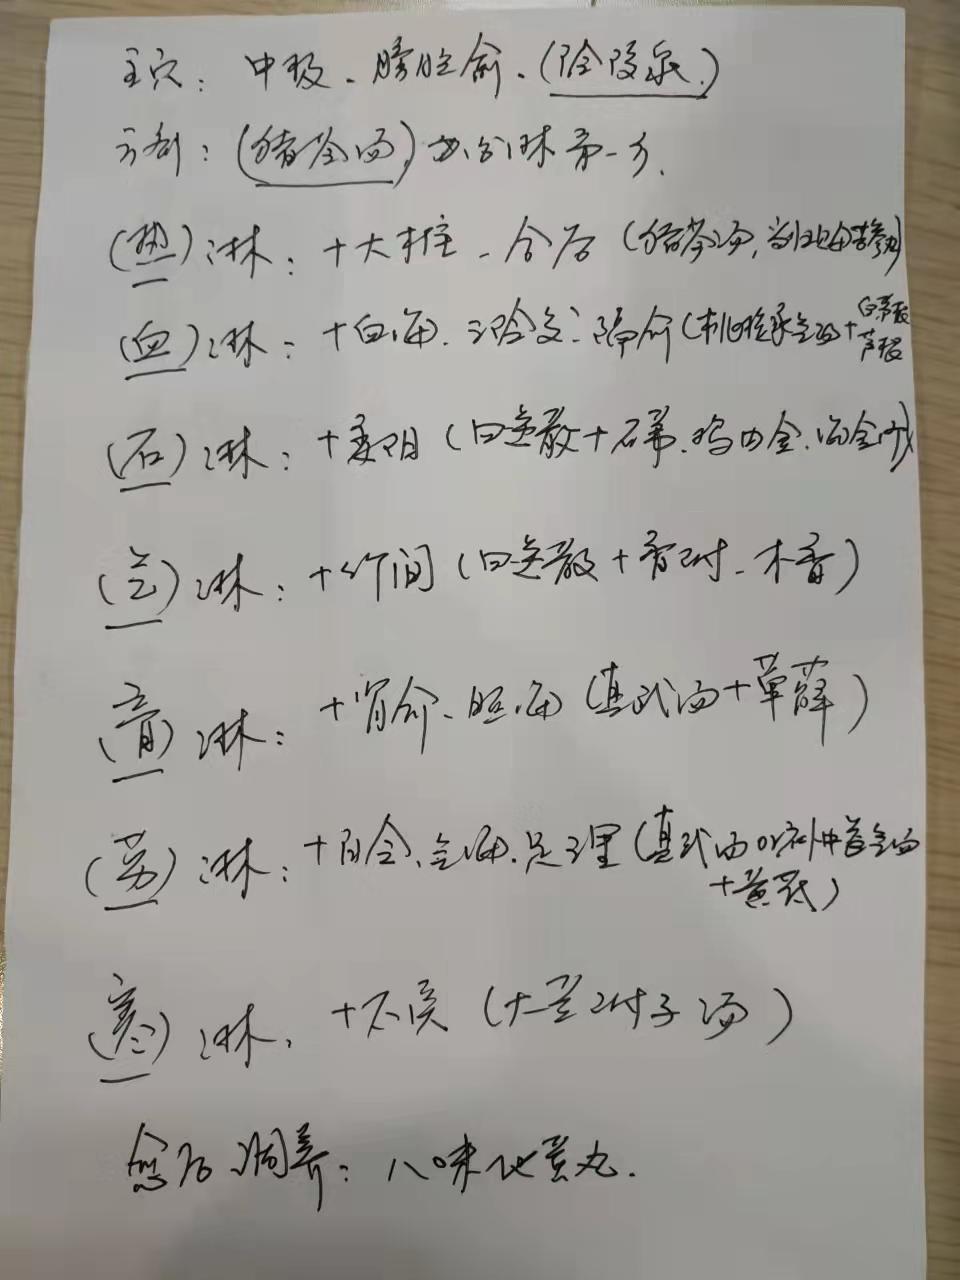 主穴：中极、膀胱俞、(阴陵泉)
方剂：(猪苓汤)，为治淋第一方.
(热)淋：+大椎、合谷 (猪苓汤，当归贝母苦参丸)
(血)淋：+血海、三阴交、膈俞 (桃核承气汤+白茅根
芦根
(石)淋：+委阳 (四逆散+石韦、鸡内金、海金沙)
(气)淋：+行间 (四逆散+香附、木香)
(膏)淋：+肾俞、照海 (真武汤+萆薢)
(劳)淋：+百会、气海、足三里 (真武汤or补中益气汤
+黄芪)
(寒)淋：+不灸 (大黄附子汤)
愈后调养：八味地黄丸.